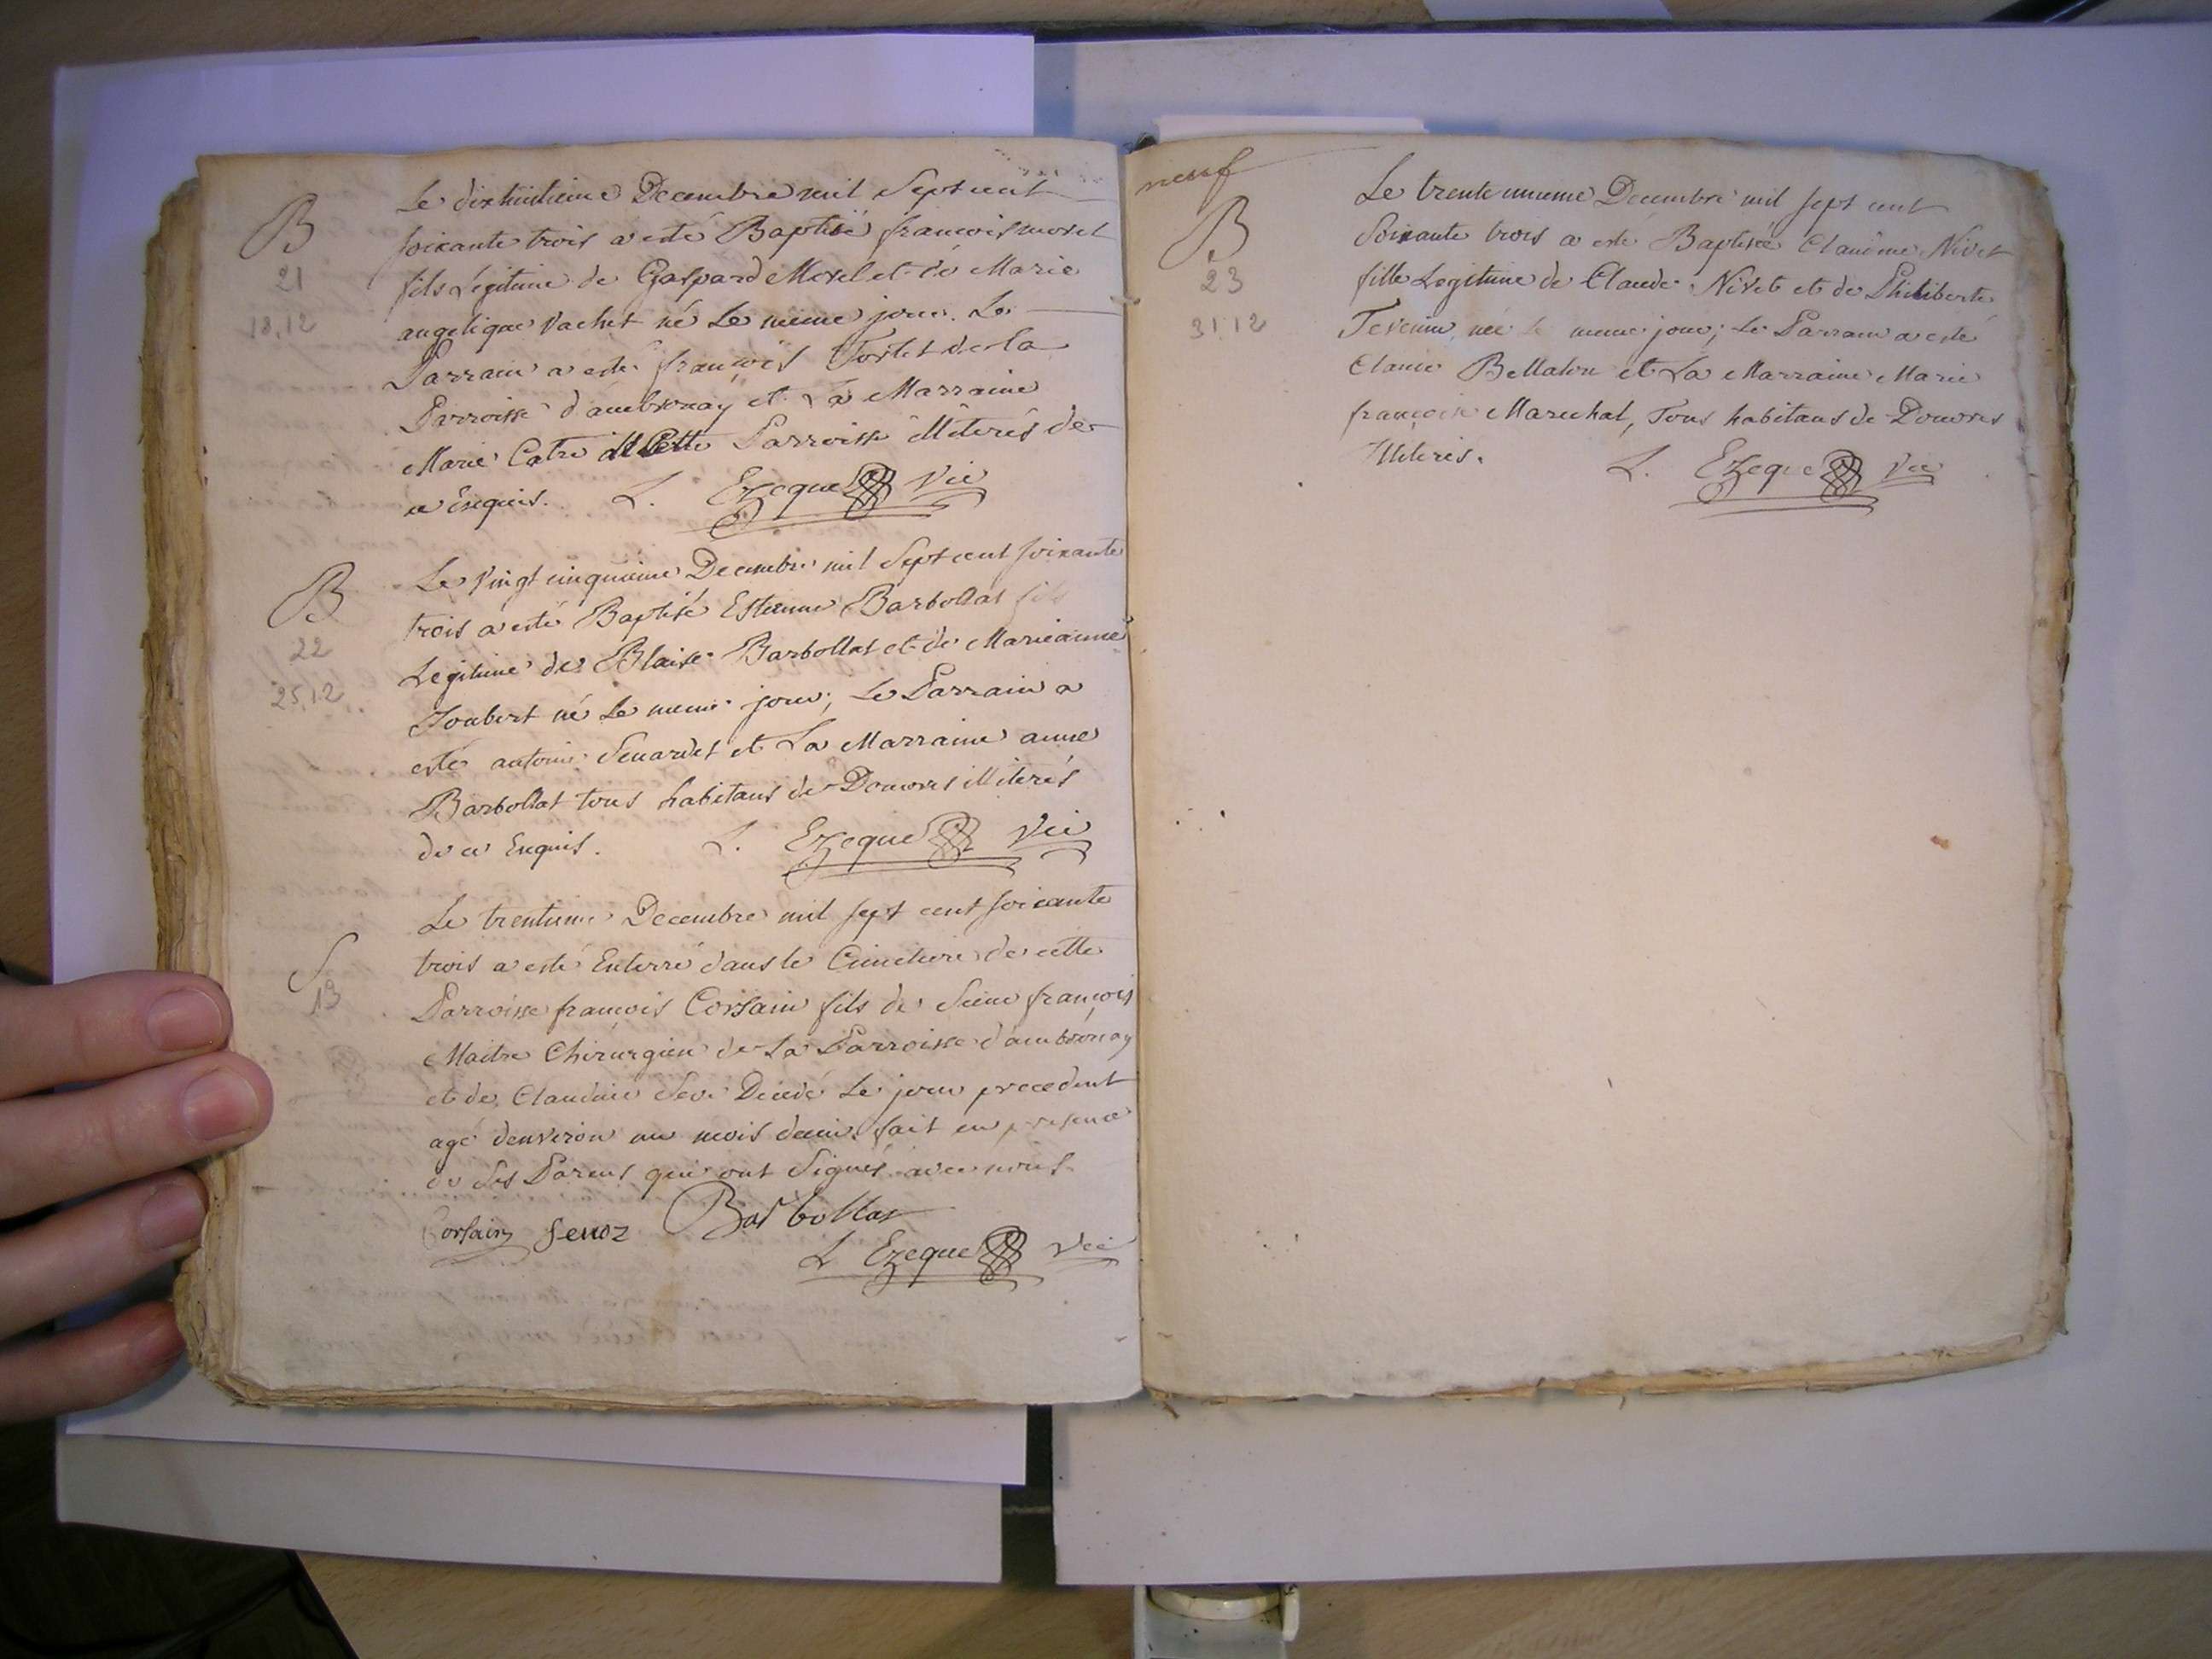 B
21
18.12
Le dixhuitieme Decembre mil Sept cent
soixante trois a esté Baptisé francois morel
fils Légitime de Gaspard Morel et de Marie
angelique Vachet né Le même jour. Le
Parrain a esté françois Tortet de la
Parroisse d'ambronay et La Marraine
Marie Catre de Cette Parroisse illiterés de
ce Enquis. L. Ezeque Vic
B
22
25.12
Le Vingt cinquieme Decembre mil Sept cent soixante
trois a esté Baptisé Estienne Barbollat fils
Legitime de Blaise Barbollat et de Marieanne
Joubert né Le meme jour; Le Parrain a
esté antoine Senardet et La Marraine anne
Barbollat tous habitans de Douvres illiterés
de ce Enquis. L. Ezeque Vic
S
13
Le trentieme Decembre mil sept cent soixante
trois a esté Enterré dans le Cimetiere de cette
Parroisse françois Corsain fils de Sieur françois
Maitre Chirurgien de La Parroisse d'ambronay
et de Claudine Decedé Le jour precedent
agé denviron un mois demi. fait en presence
de Ses Parens qui ont Signés avec nous
Corsain fenoz Barbollat
L Ezeque Vic
neuf
B
23
31.12
Le trente unieme Decembre mil sept cent
Soixante trois a esté Baptisée Claudine Nivet
fille Legitime de Claude Nivet et de Philiberte
Tevenin née le meme jour; Le Parrain a esté
Claude Bellaton et La Marraine Marie
françoise Marechal, Tous habitans de Douvres
Illiterés. L. Ezeque Vic